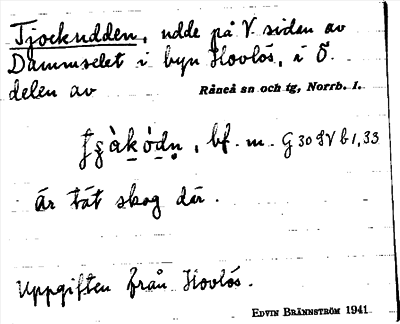 Tjockudden, udde på V. sidan av
Dammselet i byn Hovlös, i Ö.
delen av Råneå sn och tg, Norrb. l.
bf. m. G 30 SV b 1,33
är tät skog där.
Uppgiften från Hovlös.
EDVIN BRÄNNSTRÖM 1941